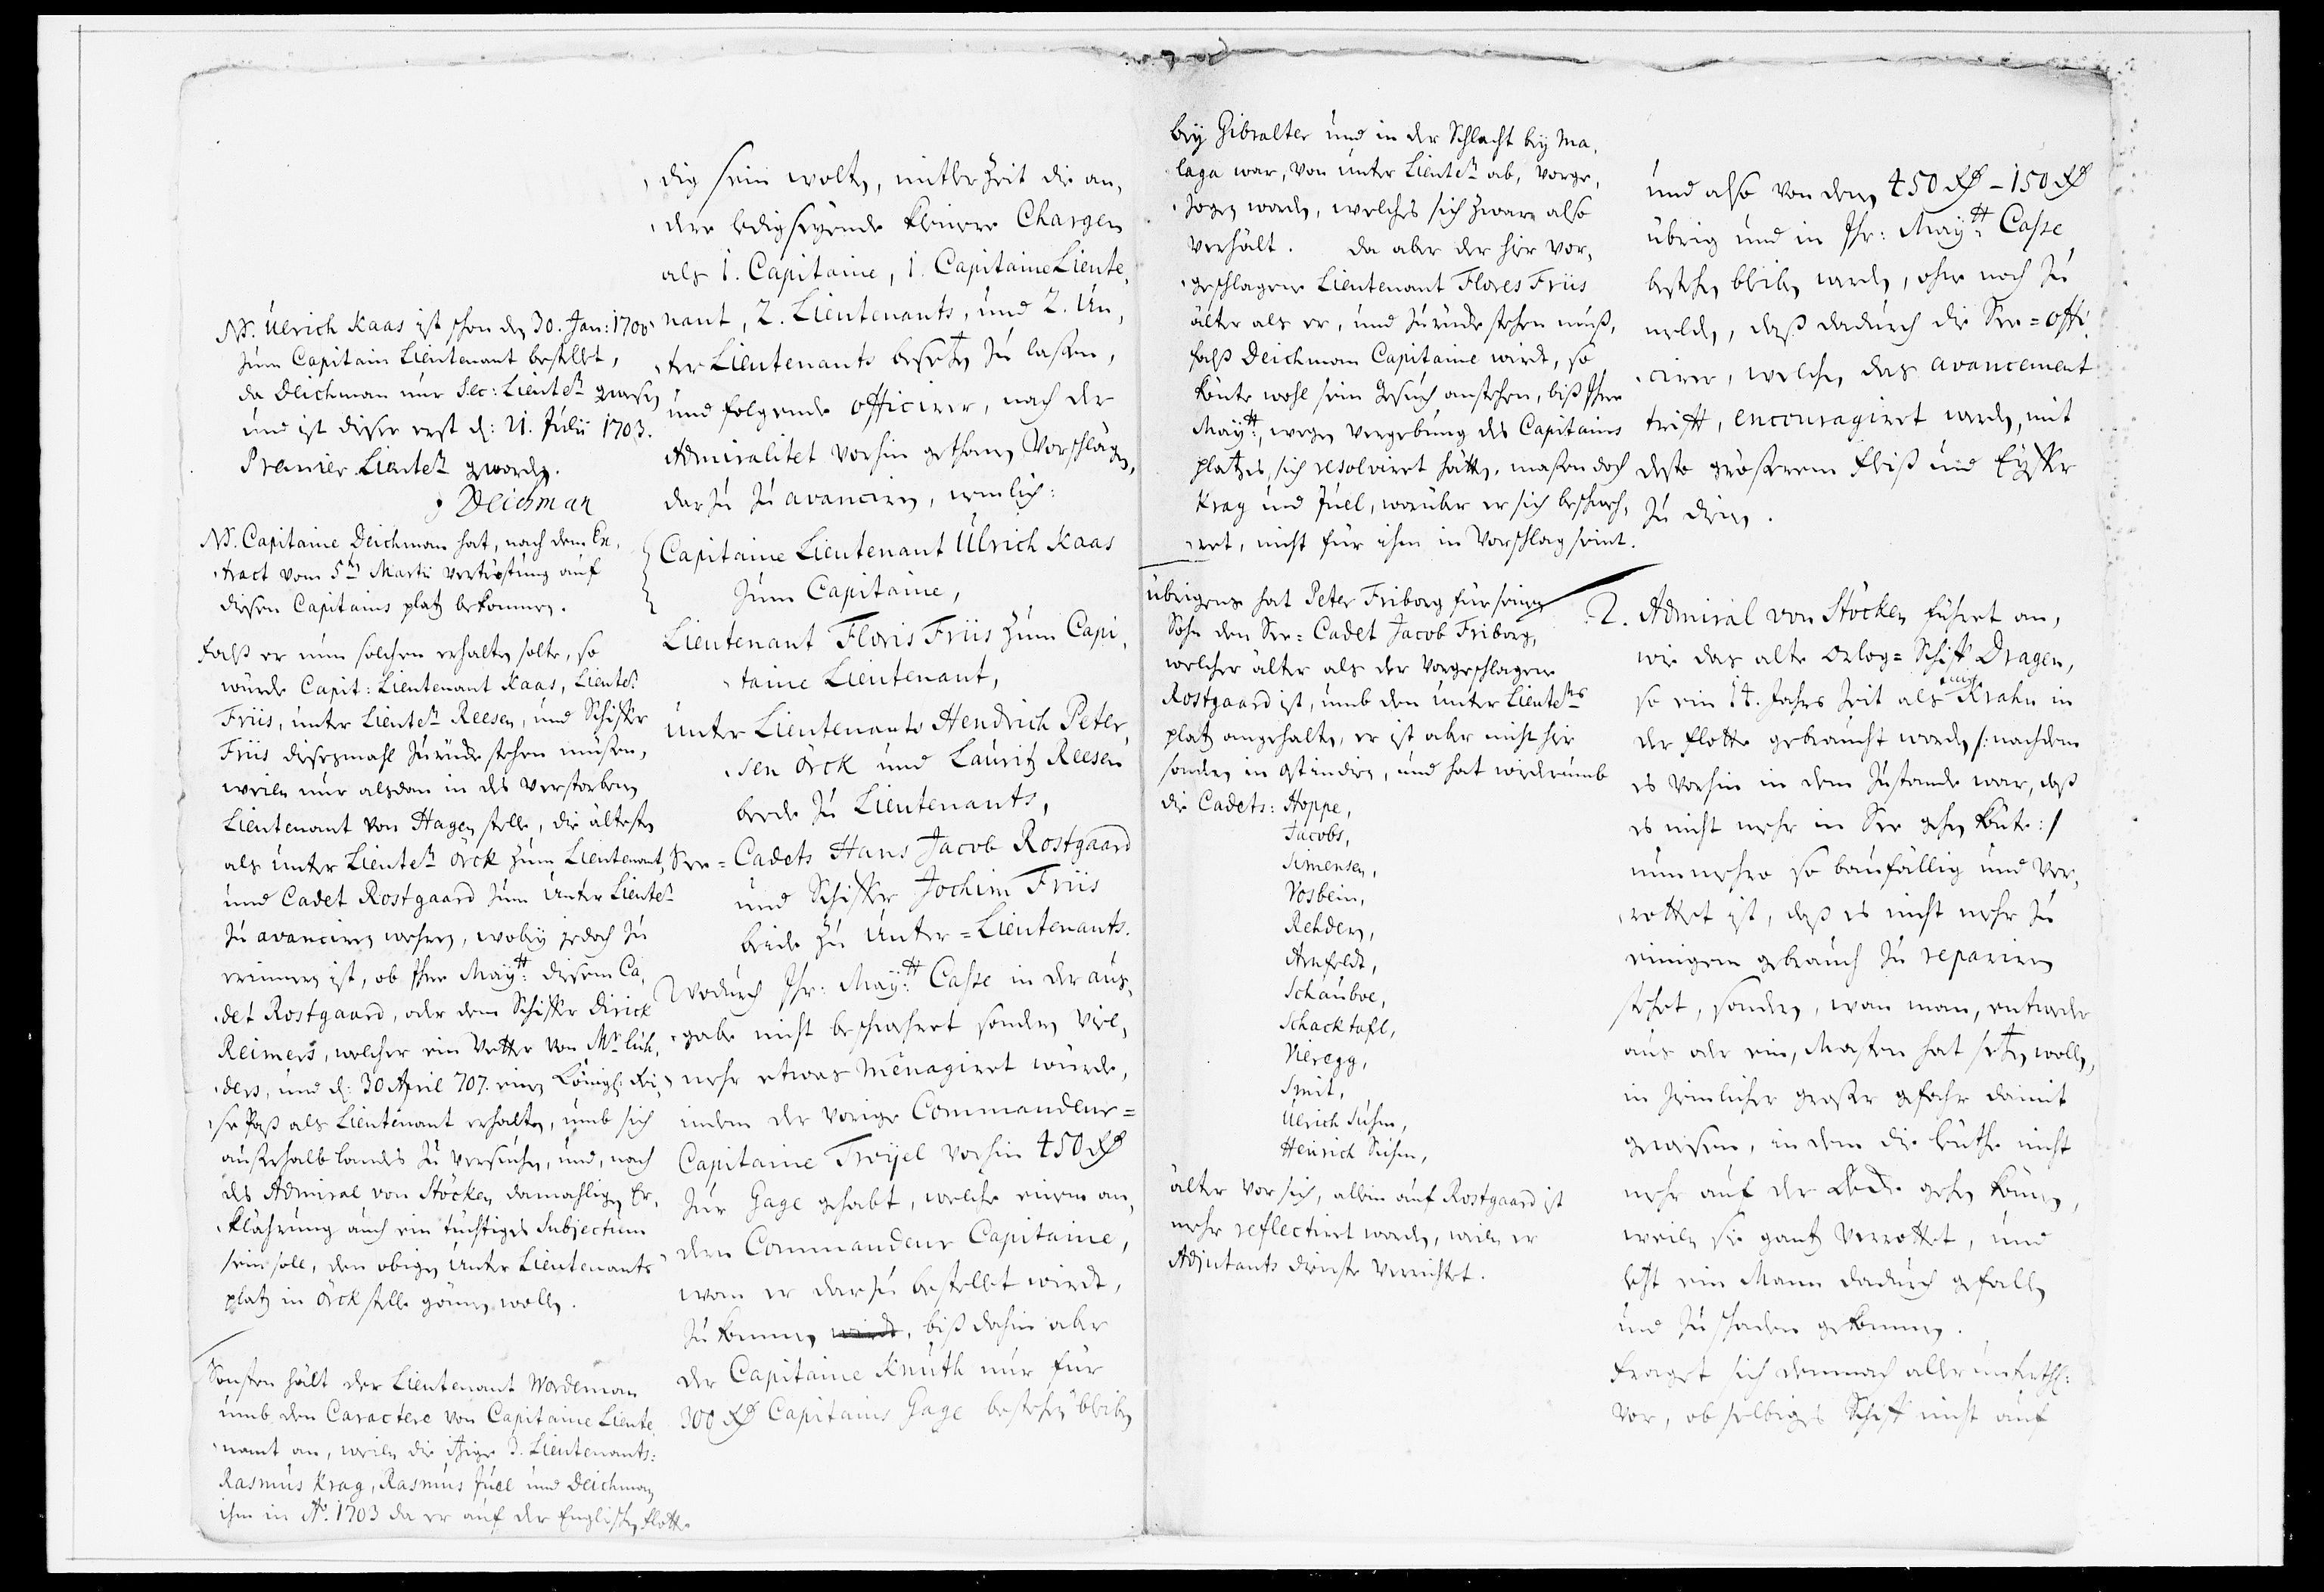 NB. Ulrich Kaas ist schon den 30. Jan: 1700
zum Capitain Lieutenant bestellet,
da Deichman nur Sec: Lieutent gewesen
und ist dieser erst d: 21. Julii 1703.
Premier Lieutent geworden.
Deichman
NB. Capitaine Deichman hat, nach dem Ex,
tract vom 5ten Martii vertröstung auf
diesen Capitains platz bekommen.
Falß er nun solchen erhalten solte, so
würde Capit: Lieutenant Kaas, Lieutent
Friis, unter Lieutent Reesen, und Schiffer
Friis dieses mahl zurücke stehen müßen,
weilen nur alsdan in des verstorbenen
Lieutenant von Hagen stelle, die älteste
als unter Lieutent Örck zum Lieutenant,
und Cadet Rostgaard zum Unter Lieutent
zu avanciren wehren, wobey jedoch zu
erinnern ist, ob Ihre Maytt: diesem Ca,
det Rostgaard, oder dem Schiffer Dirick
Reimers, welcher ein Vetter von Mr Lüh,
ders, und d: 30 April 707. einen Königl: Rei,
se Paß als Lieutenant erhalten, umb sich
außerhalb Landes zu versuchen, und, nach
des Admiral von Stöcken damahligen Er,
klährung auch ein tüchtiges Subjectum
sein soll, den obigen Unter Lieutenants
platz in Örck stelle gönnen wollen.
Sonsten hält der Lieutenant Wordeman
umb den Caractere von Capitaine Lieute,
nant an, weilen die itzige 3. Lieutenants:
Rasmus Krag, Rasmus Juel und Deichman
ihm in Ao. 1703 da er auf der Englischen Flotte
dig sein wolten, mitlerzeit die an,
dere ledigseyende kleinere Chargen
als 1. Capitaine, 1. Capitaine Lieute,
nant, 2. Lieutenants, und 2. Un,
ter Lieutenants besetzen zu laßen,
und folgende officirer, nach der
Admiralitet vorhin gethanen Vorschlägen,
darzu zu avanciren, nemlich:
Capitaine Lieutenant Ulrich Kaas
zum Capitaine,
Lieutenant Floris Friis zum Capi,
taine Lieutenant,
unter Lieutenants Hendrich Peter,
sen Örck und Lauritz Reesen
beede zu Lieutenants,
See=Cadets Hans Jacob Rostgaard
und Schiffer Jochim Friis
beide zu Unter=Lieutenants.
Wodurch Ihr: Maytt: Casse in der aus,
gabe nicht beschwehret sondern viel,
mehr etwas menagiret würde,
indem der vorige Commandeur=
Capitaine Troyel vorhin 450 Rd
zur Gage gehabt, welche einem an,
dern Commandeur Capitaine,
wan er darzu bestellet wirdt,
zu kommen wirdt, biß dahin aber
der Capitaine Knuth nur für
300 Rd Capitains Gage bestehen bleiben
bey Gibralter und in der Schlacht bey Ma,
laga war, von unter Lieutent ab, vorge,
zogen worden, welches sich zwar also
verhält. Da aber der hier vor,
geschlagene Lieutenant Flores Friis
älter als er, und zurücke stehen muß,
falß Deichman Capitaine wirdt, so
könte wohl sein Gesuch anstehen, biß Ihre
Maytt:, wegen vergebung des Capitains
platzes, sich resolviret hätten, maßen doch
Krag und Juel, worüber er sich beschweh,
ret, nicht für ihm in Vorschlag seint.
Übrigens hat Peter Friborg für seinen
Sohn den See=Cadet Jacob Friborg,
welcher älter als der vorgeschlagene
Rostgaard ist, umb den unter Lieutents
platz angehalten, er ist aber nicht hie
sondern in Ostindien, und hat wiederumb
die Cadets: Hoppe,
Jacobs,
Simensen,
Vosbein,
Rehder,
Arnfeldt,
Schauboe,
Schacktafl,
Vieregg,
Smit,
Ulrich Suhm,
Henrich Suhm,
älter vor sich, allein auf Rostgaard ist
mehr reflectiret worden, weilen er
Adjutants dienste verrichtet.
und also von denen 450 Rd - 150 Rd
übrig und in Ihr: Maytt: Casse
bestehen bleiben werden, ohne noch zu
melden, daß dadurch die See=offi,
cirer, welchen das avancement
trifft, encouragiret werden, mit
desto größerem Fleiß und Eyffer
zu dienen.
2. Admiral von Stöcken führet an,
wie das alte Orlog=Schiff Dragen,
so ein 14. Jahres zeit als eine Krahn in
der Flotte gebraucht worden /: nachdem
es vorhin in dem zustande war, daß
es nicht mehr in See gehen könte :/
nunmehro so baufällig und ver,
rottet ist, daß es nicht mehr zu
einigem gebrauch zu repariren
stehet, sondern, wan man, entweder
aus oder ein, Masten hat setzen wollen,
in zimlicher großer gefahr damit
gewesen, in dem die Leuthe nicht
mehr auf der Decke gehen können,
weilen sie gantz verrottet, und
letzt ein Mann dadurch gefallen
und zu schaden gekommen.
Fraget sich demnach allerunterthl:
vor, ob selbiges Schiff nicht auf